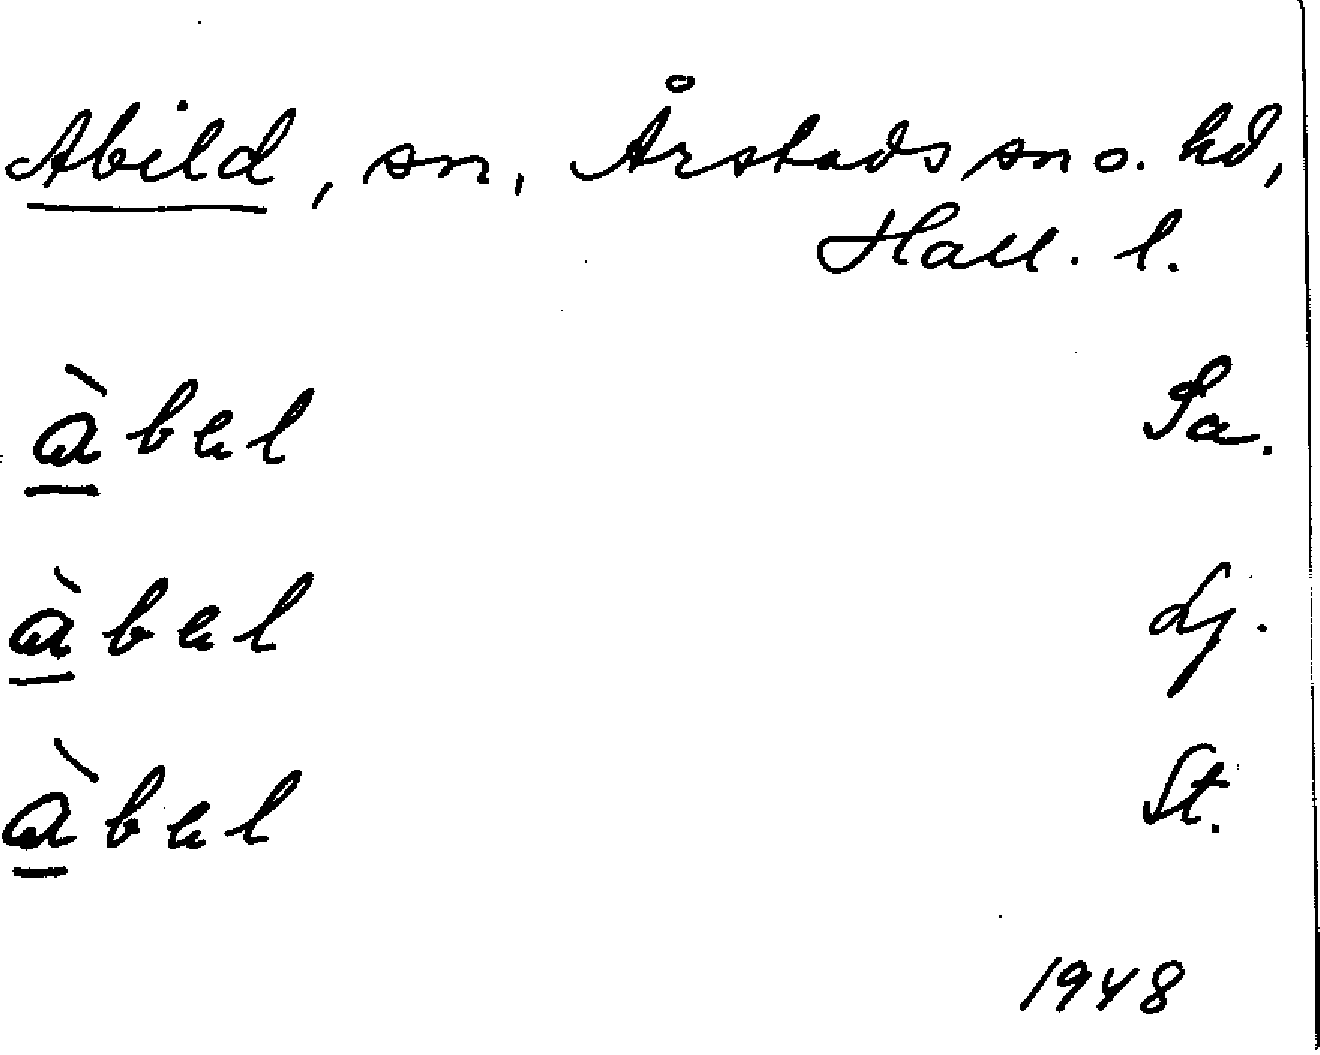 Abild, sn, Årstads sn o. hd,
Hall. l.
àbel Sa.
àbel Lj.
àbel St.
1948